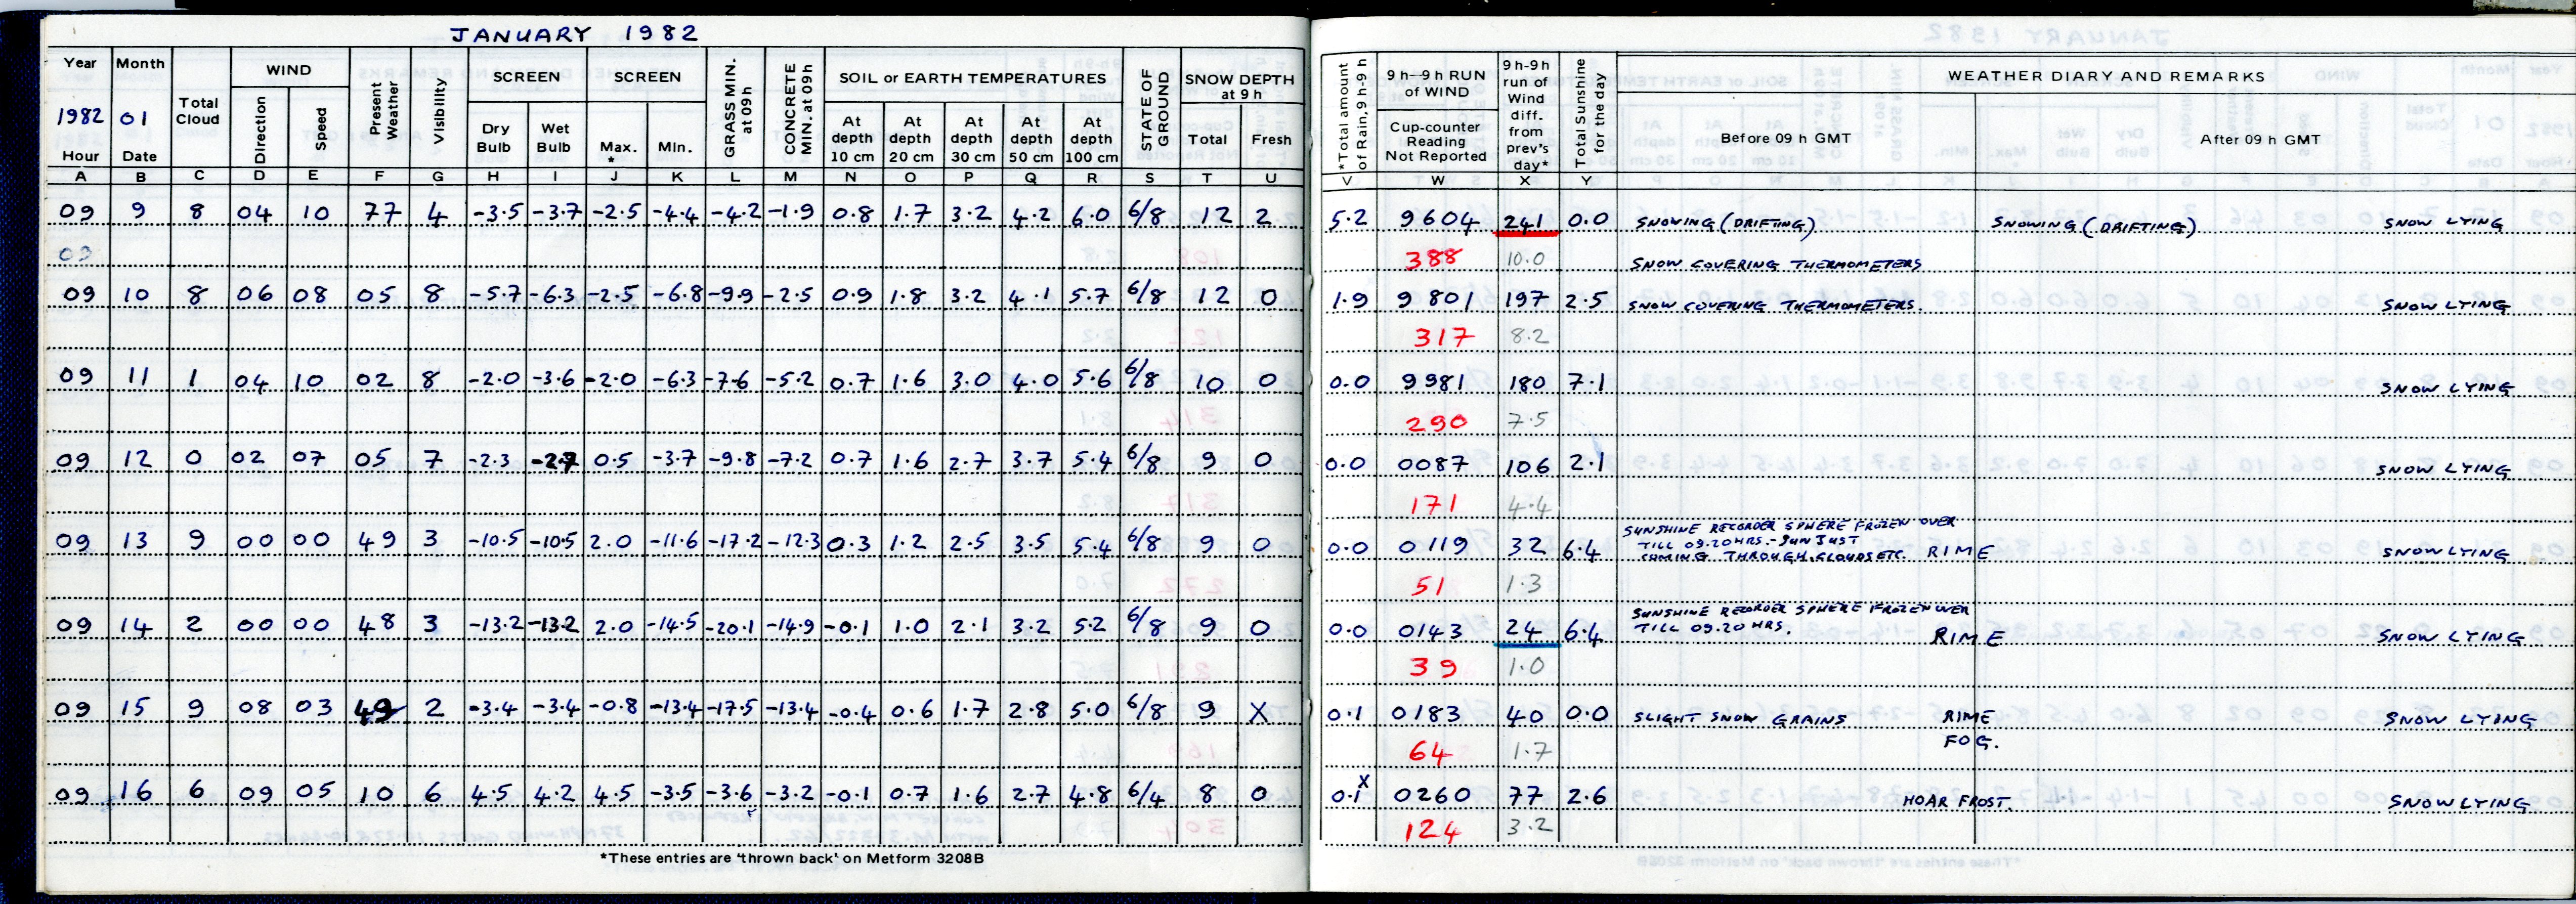 JANUARY 1982
Year Month Total Cloud WIND Direction Speed Present Weather Visibility SCREEN Dry Bulb Wet Bulb SCREEN Max. * Min. GRASS MIN. at 09h CONCRETE MIN. at 09h SOIL or EARTH TEMPERATURES At depth 10 cm At depth 20 cm At depth 30 cm At depth 50 cm At depth 100 cm STATE OF GROUND SNOW DEPTH at 9 h Total Fresh *Total amount of Rain, 9h-9 h 9 h—9 h RUN of WIND Cup-counter Reading Not Reported 9 h-9h run of Wind diff. from prev's day* Total Sunshine for the day WEATHER DIARY AND REMARKS
1982 01
Hour Date Before 09 h GMT After 09 h GMT
A B C D E F G H I J K L M N O P Q R S T U V W X Y
09 9 8 04 10 77 4 -3.5 -3.7 -2.5 -4.4 -4.2 -1.9 0.8 1.7 3.2 4.2 6.0 6/8 12 2 5.2 9604 241 0.0 SNOWING (DRIFTING) SNOWING (DRIFTING) SNOW LYING
09 388 10.0 SNOW COVERING THERMOMETERS
09 10 8 06 08 05 8 -5.7 -6.3 -2.5 -6.8 -9.9 -2.5 0.9 1.8 3.2 4.1 5.7 6/8 12 0 1.9 9801 197 2.5 SNOW COVERING THERMOMETERS. SNOW LYING
317 8.2
09 11 1 04 10 02 8 -2.0 -3.6 -2.0 -6.3 -7.6 -5.2 0.7 1.6 3.0 4.0 5.6 6/8 10 0 0.0 9981 180 7.1 SNOW LYING
290 7.5
09 12 0 02 07 05 7 -2.3 -2.7 0.5 -3.7 -9.8 -7.2 0.7 1.6 2.7 3.7 5.4 6/8 9 0 0.0 0087 106 2.1 SNOW LYING
171 4.4
SUNSHINE RECORDER SPHERE FROZEN OVER
TILL 09.20 HRS. - SUN JUST
09 13 9 00 00 49 3 -10.5 -10.5 2.0 -11.6 -17.2 -12.3 0.3 1.2 2.5 3.5 5.4 6/8 9 0 0.0 0119 32 6.4 COMING THROUGH CLOUDS ETC. RIME SNOW LYING
51 1.3
SUNSHINE RECORDER SPHERE FROZEN OVER
09 14 2 00 00 48 3 -13.2 -13.2 2.0 -14.5 -20.1 -14.9 -0.1 1.0 2.1 3.2 5.2 6/8 9 0 0.0 0143 24 6.4 TILL 09.20 HRS. RIME SNOW LYING
39 1.0
09 15 9 08 03 49 2 -3.4 -3.4 -0.8 -13.4 -17.5 -13.4 -0.4 0.6 1.7 2.8 5.0 6/8 9 X 0.1 0183 40 0.0 SLIGHT SNOW GRAINS RIME SNOW LYING
64 1.7 FOG.
09 16 6 09 05 10 6 4.5 4.2 4.5 -3.5 -3.6 -3.2 -0.1 0.7 1.6 2.7 4.8 6/4 8 0 0.1X 0260 77 2.6 HOAR FROST. SNOW LYING
124 3.2
*These entries are 'thrown back' on Metform 3208B